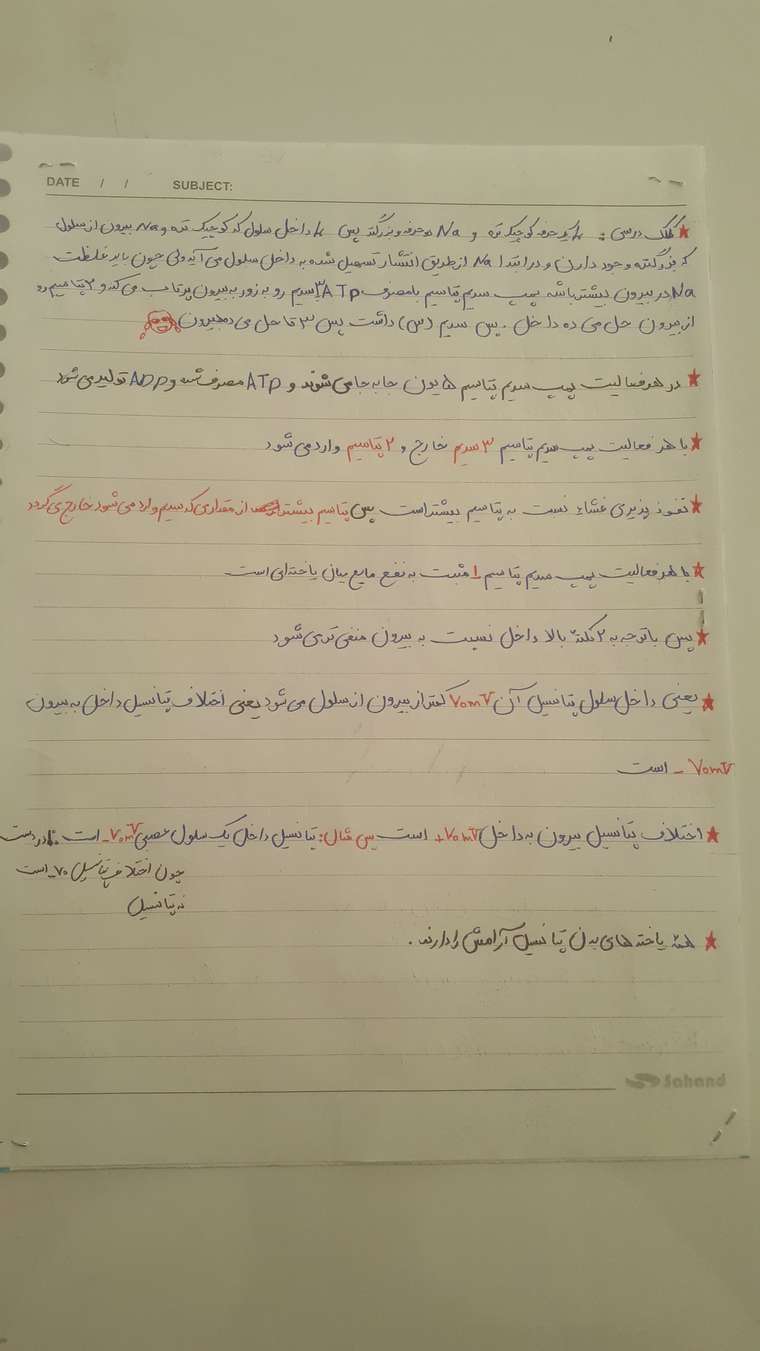 DATE / / SUBJECT:
★ کلک درسی: K یه حرفه کوچیک تره و Na دو حرفه و بزرگتره پس K داخل سلول که کوچیک تره و Na بیرون از سلول
که بزرگتره وجود دارن و در ابتدا Na از طریق انتشار تسهیل شده به داخل سلول می آید ولی چون باید غلظت
Na در بیرون بیشتر باشه پمپ سدیم پتاسیم با مصرف ATP ۳ سدیم رو به زور به بیرون پرتاب می کنه و ۲ پتاسیم رو
از بیرون حل می ده داخل. پس سدیم (س) داشت پس ۳ تا حل می ده بیرون
★ در هر فعالیت پمپ سدیم پتاسیم ها یون جا به جا می شوند و ATP مصرف شده و ADP تولید می شود
★ با هر فعالیت پمپ سدیم پتاسیم ۳ سدیم خارج و ۲ پتاسیم وارد می شود
★ نفوذ پذیری غشاء نسبت به پتاسیم بیشتر است پس پتاسیم بیشتر از مقداری که سدیم وارد می شود خارج می گردد
★ با هر فعالیت پمپ سدیم پتاسیم ۱ مثبت به نفع مایع میان یاخته ای است
★ پس با توجه به ۲ نکته بالا داخل نسبت به بیرون منفی تر می شود
★ یعنی داخل سلول پتانسیل آن ۷۰mV کمتر از بیرون از سلول می شود یعنی اختلاف پتانسیل داخل به بیرون
۷۰mV - است
★ اختلاف پتانسیل بیرون به داخل ۷۰mV+ است پس مثال: پتانسیل داخل یک سلول عصبی ۷۰mV- است. نادرست
چون اختلاف پتانسیل ۷۰- است
نه پتانسیل
★ همه یاخته های بدن پتانسیل آرامش را دارند.
Sahand